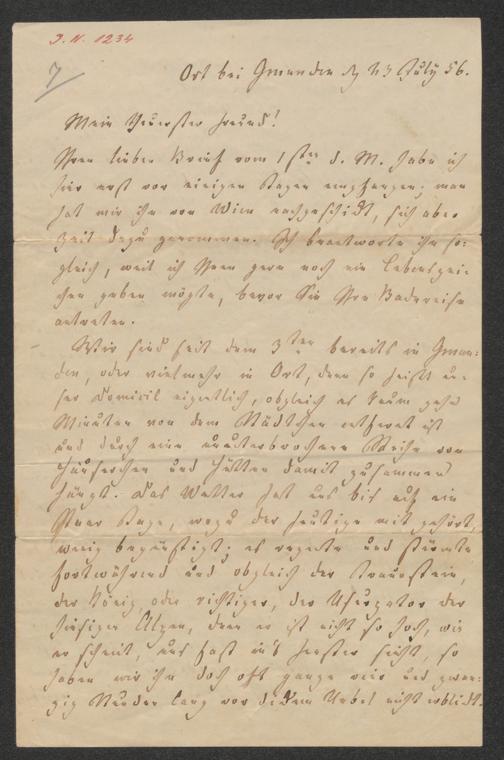 J.N. 1234
7
Ort bei Gmunden d 23 July 56.
Mein theuerster Freund!
Ihren lieben Brief vom 1sten d. M. habe ich
hier erst vor einigen Tagen empfangen; man
hat mir ihn von Wien nachgeschickt, sich aber
Zeit dazu genommen. Ich beantworte ihn so-
gleich, weil ich Ihnen gern noch ein Lebenszei-
chen geben mögte, bevor Sie Ihre Badereise
antreten.
Wir sind seit dem 3ten bereits in Gmun-
den, oder vielmehr in Ort, denn so heißt un-
ser Domicil eigentlich, obgleich es kaum zehn
Minuten von dem Städtchen entfernt ist
und durch eine ununterbrochene Reihe von
Häuserchen und Hütten damit zusammen
hängt. Das Wetter hat uns bis auf ein
Paar Tage, wozu der heutige mit gehört,
wenig begünstigt; es regnete und stürmte
fortwährend und obgleich der Traunstein,
der König oder richtiger, der Usurpator der
hiesigen Alpen, denn er ist nicht so hoch, wie
er scheint, uns fast in's Fenster sieht, so
haben wir ihn doch oft ganze vier und zwan-
zig Stunden lang vor dickem Nebel nicht erblickt.